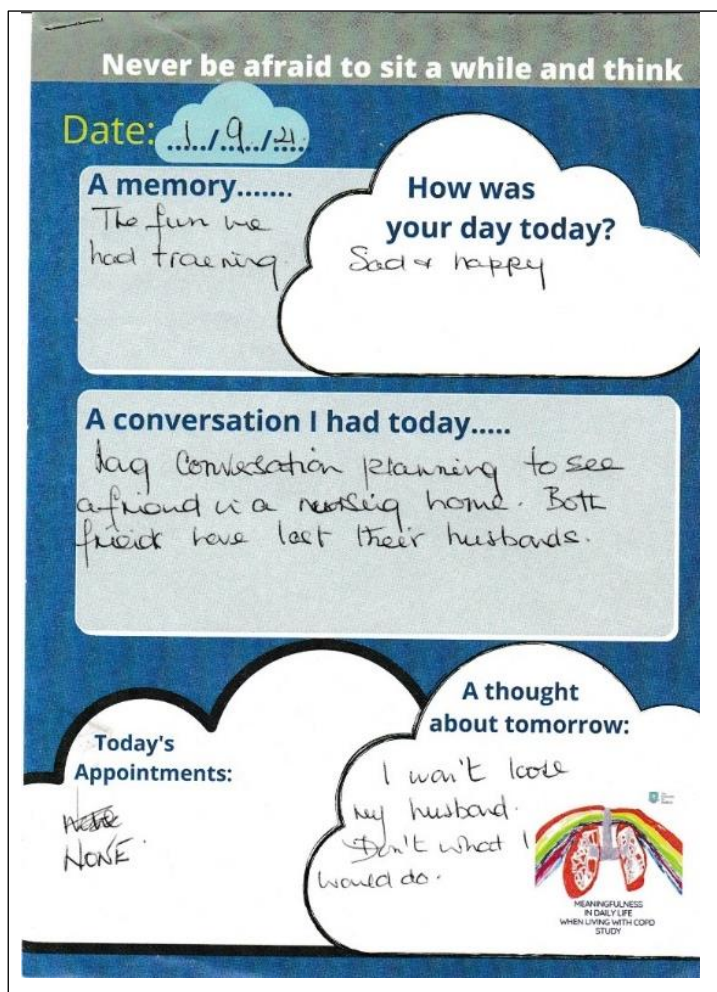 Never be afraid to sit a while and think
Date: 1/9/21
A memory.......
The fun we
had training.
How was
your day today?
Sad & happy
A conversation I had today.....
Conversation planning to see
a friend in a nursing home. Both
friends have lost their husbands.
Today's
Appointments:
NONE.
A thought
about tomorrow:
I won't loose
my husband.
Don't what I
would do.
MEANINGFULNESS
IN DAILY LIFE
WHEN LIVING WITH COPD
STUDY